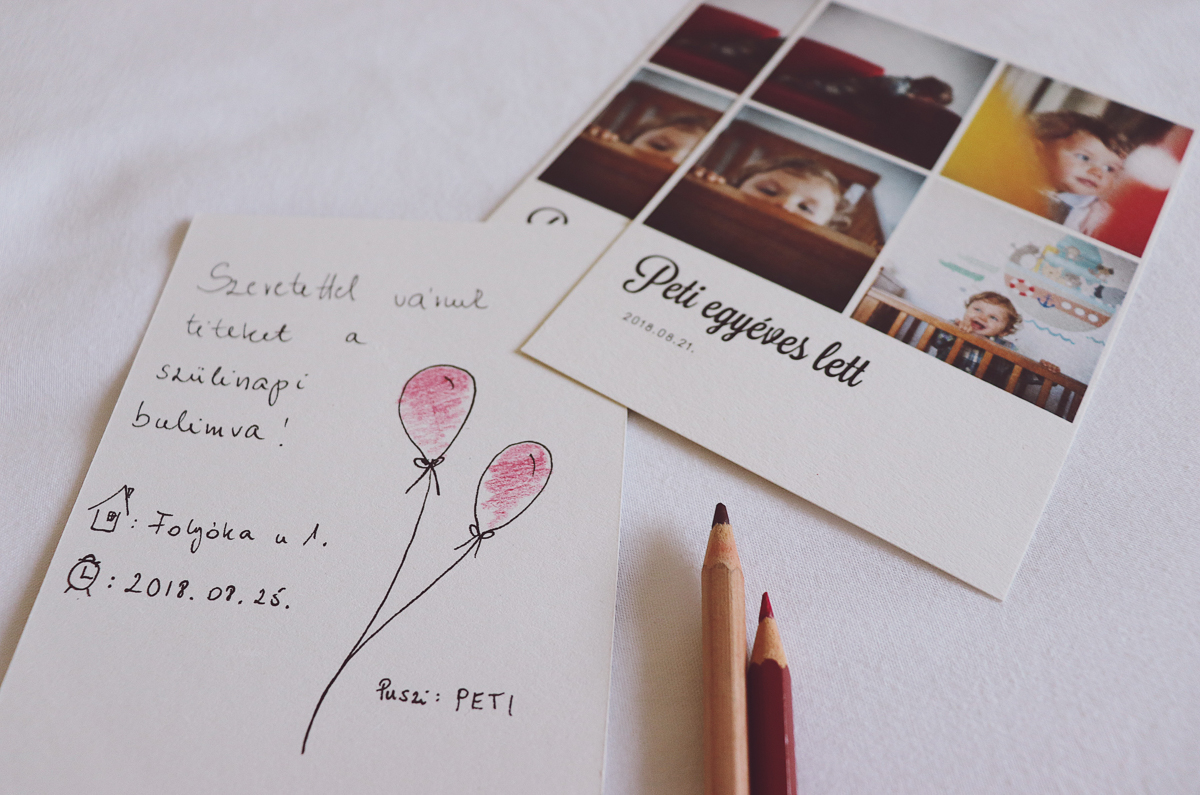 Szeretettel várunk
titeket a
szülinapi
bulimra!
: Folyóka u 1.
: 2018. 08. 25.
Puszi: PETI
Peti egyéves lett
2018.08.21.